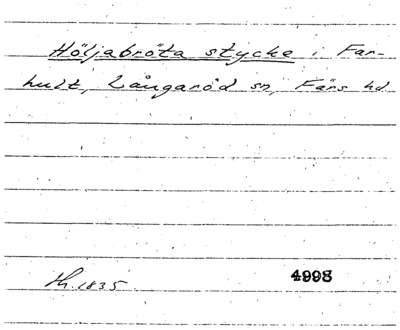 Höljabröta stycke i Far-
hult, Långaröd sn, Färs hd
h. 1835.
4998